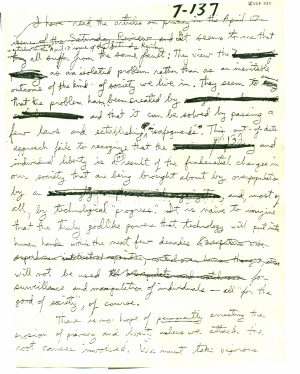 T-137
I have read the articles on privacy in the April 17
issue of the Saturday Review and it seems to me that
they all suffer from the same fault; They view the
as an isolated problem rather than as an inevitable
outcome of the kind of society we live in. They seem to
that the problem has been created by
and that it can be solved by passing a
few laws and establishing "safeguards". This out-of-date
approach fails to recognize that the
individual liberty is a result of the fundamental changes in
our society that are being brought about by overpopulation
by a and, most of
all, by technological "progress". It is naive to imagine
that the truly godlike powers that technology will put into
human hands within the next few decades
will not be used for
surveillance and manipulation of individuals — all "for the
good of society", of course.
There is no hope of permanently arresting the
erosion of privacy and liberty unless we attack the
root causes involved. We must take vigorous